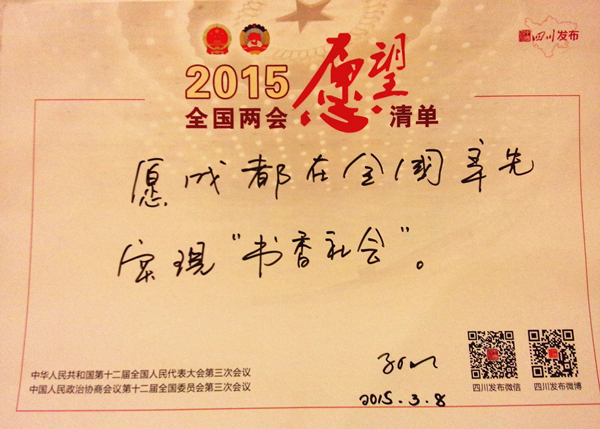 四川发布
2015 愿望
全国两会 清单
愿成都在全国率先
实现“书香社会”。
中华人民共和国第十二届全国人民代表大会第三次会议
中国人民政治协商会议第十二届全国委员会第三次会议
四川发布微信
四川发布微博
2015.3.8